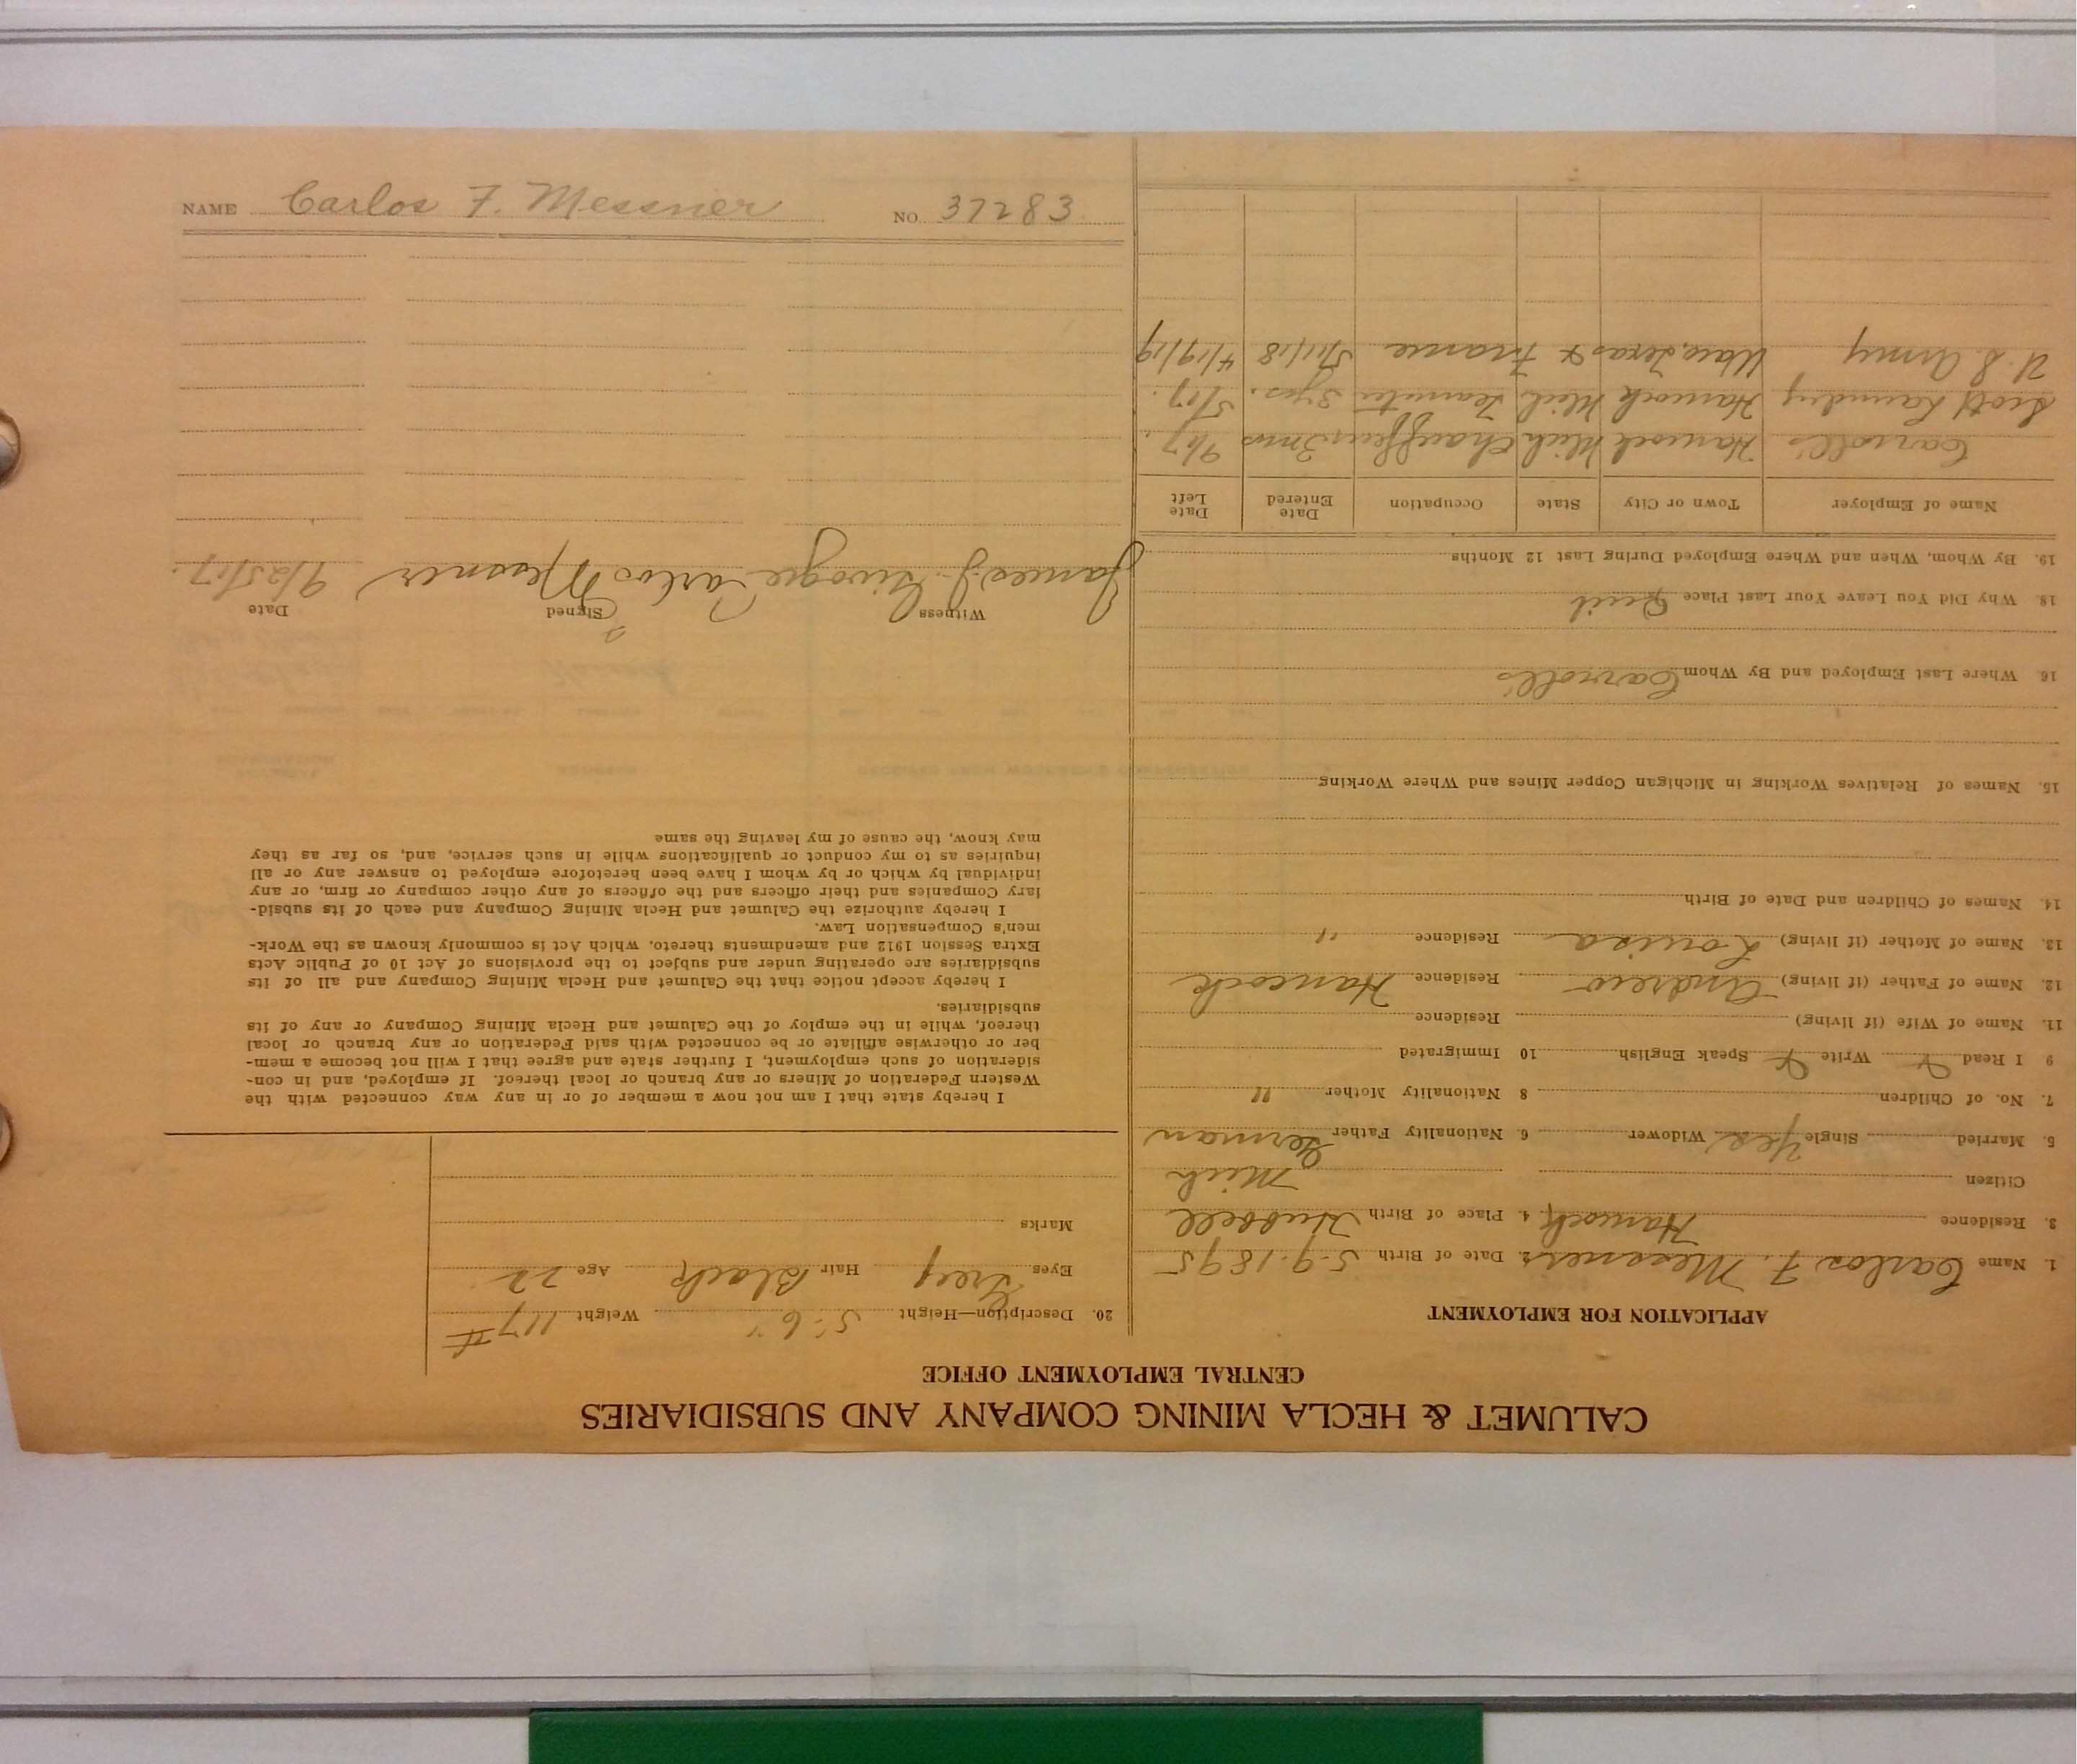 CALUMET & HECLA MINING COMPANY AND SUBSIDIARIES
CENTRAL EMPLOYMENT OFFICE
APPLICATION FOR EMPLOYMENT
1. Name Carlos F. Messner 2. Date of Birth 5-9-1895
3. Residence Hancock 4. Place of Birth Hubbell
Citizen Mich
5. Married Single Yes Widower 6. Nationality Father German
7. No. of Children 8 Nationality Mother "
9 I Read Write Speak English 10 Immigrated
11. Name of Wife (if living) Residence
12. Name of Father (if living) Andrew Residence Hancock
13. Name of Mother (if living) Louisa Residence "
14. Names of Children and Date of Birth
15. Names of Relatives Working in Michigan Copper Mines and Where Working
16. Where Last Employed and By Whom Carroll's
18. Why Did You Leave Your Last Place Quit
19. By Whom, When and Where Employed During Last 12 Months
Name of Employer Town or City State Occupation Date Entered Date Left
Carroll's Hancock Mich Chauffeur 3 mos 9/17.
Scott Laundry Hancock Mich Teamster 3 yrs. 5/17.
U. S. Army Waco, Texas & France 5/11/18 4/19/19
20. Description—Height 5' 6" Weight 117 #
Eyes Grey Hair Black Age 22
Marks
I hereby state that I am not now a member of or in any way connected with the
Western Federation of Miners or any branch or local thereof. If employed, and in con-
sideration of such employment, I further state and agree that I will not become a mem-
ber or otherwise affiliate or be connected with said Federation or any branch or local
thereof, while in the employ of the Calumet and Hecla Mining Company or any of its
subsidiaries.
I hereby accept notice that the Calumet and Hecla Mining Company and all of its
subsidiaries are operating under and subject to the provisions of Act 10 of Public Acts
Extra Session 1912 and amendments thereto, which Act is commonly known as the Work-
men's Compensation Law.
I hereby authorize the Calumet and Hecla Mining Company and each of its subsid-
iary Companies and their officers and the officers of any other company or firm, or any
individual by which or by whom I have been heretofore employed to answer any or all
inquiries as to my conduct or qualifications while in such service, and, so far as they
may know, the cause of my leaving the same
Witness Signed Date
James J. Carlos F Messner 9/25/17.
NAME Carlos F. Messner NO. 37283